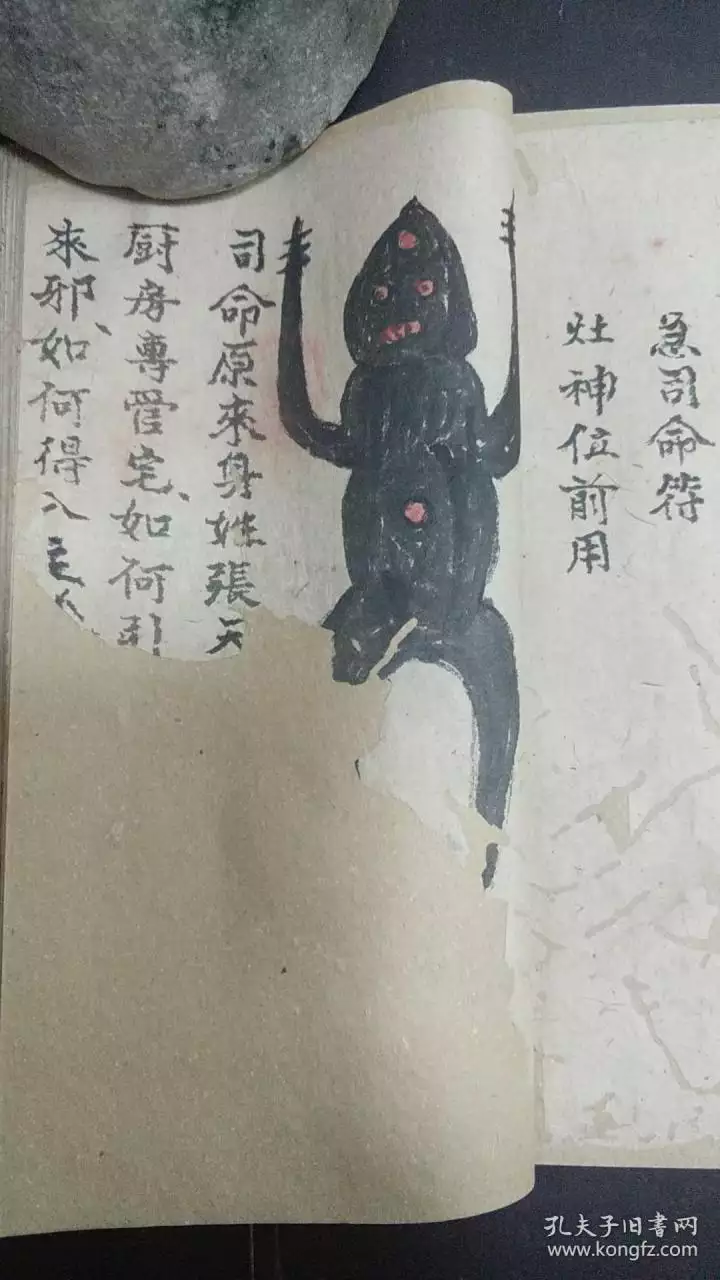 急司命符
灶神位前用
司命原來身姓張天
厨房專管宅、如何引
來邪、如何得入
孔夫子旧書网
www.kongfz.com